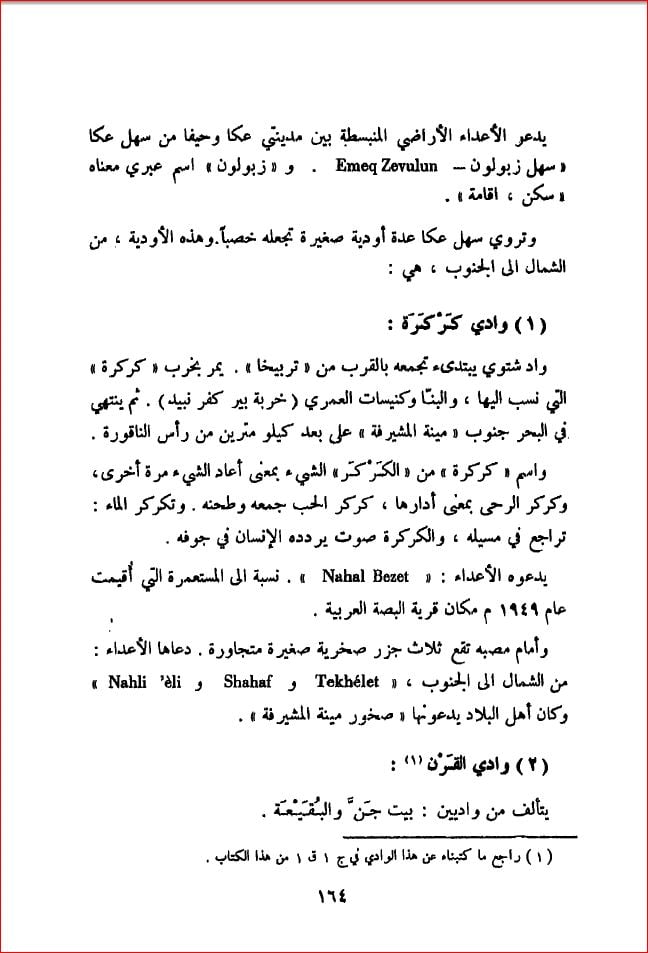 يدعو الأعداء الأراضي المنبسطة بين مدينتي عكا وحيفا من سهل عكا
« سهل زبولون – Emeq Zevulun . و « زبولون » اسم عبري معناه
« سكن ، اقامة » .
وتروي سهل عكا عدة أودية صغيرة تجعله خصباً.وهذه الأودية ، من
الشمال الى الجنوب ، هي :
(١) وادي كَرْكَرَة :
واد شتوي يبتدىء تجمعه بالقرب من « تربيخا » . يمر بخرب « كركرة »
التي نسب اليها ، والبنّا وكنيسات العمري ( خربة بير كفر نبيد ) . ثم ينتهي
في البحر جنوب « مينة المشيرفة » على بعد كيلو مترين من رأس الناقورة .
واسم « كركرة » من « الكَرْكَر » الشيء بمعنى أعاد الشيء مرة أخرى،
وكركر الرحى بمعنى أدارها ، كركر الحب جمعه وطحنه . وتكركر الماء :
تراجع في مسيله ، والكركرة صوت يردده الإنسان في جوفه .
يدعوه الأعداء : « Nahal Bezet » . نسبة الى المستعمرة التي أُقيمت
عام ١٩٤٩ م مكان قرية البصة العربية .
وأمام مصبه تقع ثلاث جزر صخرية صغيرة متجاورة . دعاها الأعداء :
من الشمال الى الجنوب ، « Tekhélet و Shahaf و Nahli 'èli »
وكان أهل البلاد يدعونها « صخور مينة المشيرفة » .
(٢) وادي القَرْن (١) :
يتألف من واديين : بيت جَنّ والبُقَيْعَة .
(١) راجع ما كتبناه عن هذا الوادي في ج ١ ق ١ من هذا الكتاب .
١٦٤